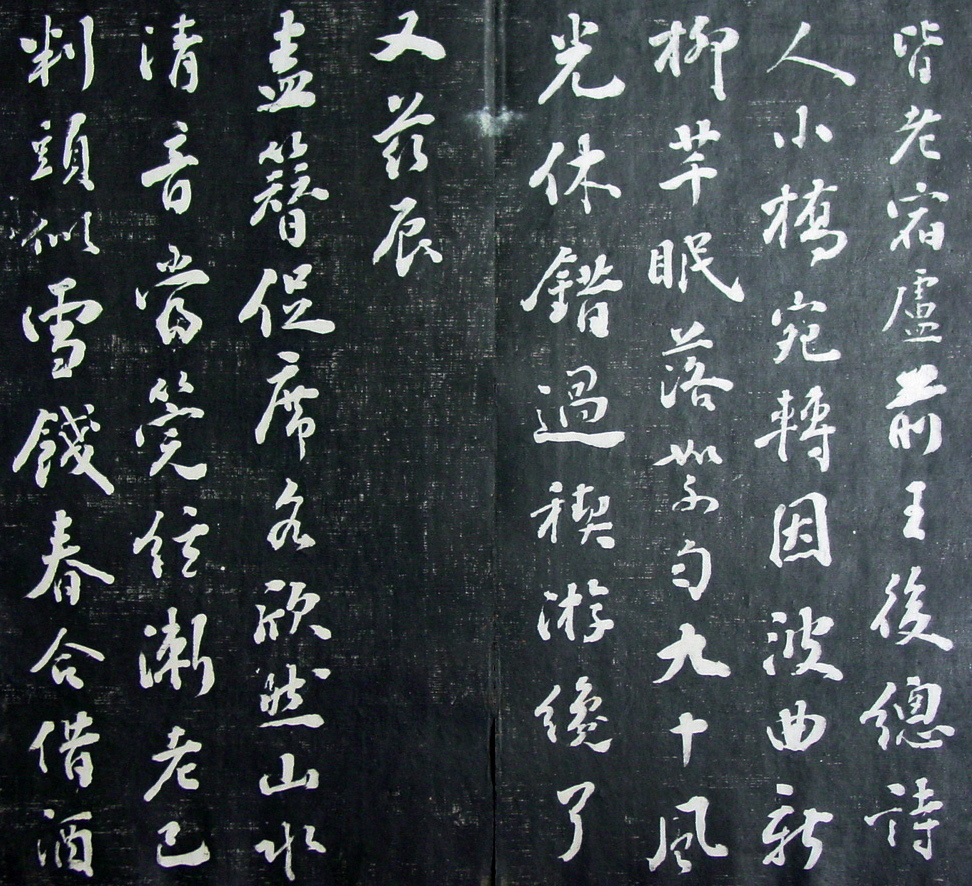 皆老宿盧前王後總詩
人小橋宛轉因波曲新
柳芊眠落照勻九十風
光休錯過禊游纔了
又茲辰
盍簪促席各欣然山水
清音當筦絃漸老已
判頭似雪餞春合借酒